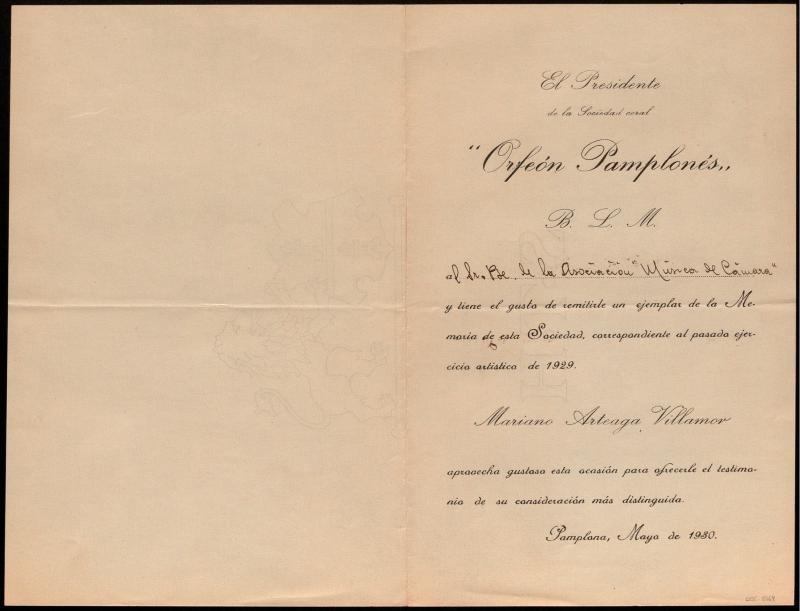 El Presidente
de la Sociedad coral
"Orfeón Pamplonés„
B. L. M.
al Sr. Pte. de la Asociación "Música de Cámara"
y tiene el gusto de remitirle un ejemplar de la Me-
moria de esta Sociedad, correspondiente al pasado ejer-
cicio artístico de 1929.
Mariano Arteaga Villamor
aprovecha gustoso esta ocasión para ofrecerle el testimo-
nio de su consideración más distinguida.
Pamplona, Mayo de 1930.